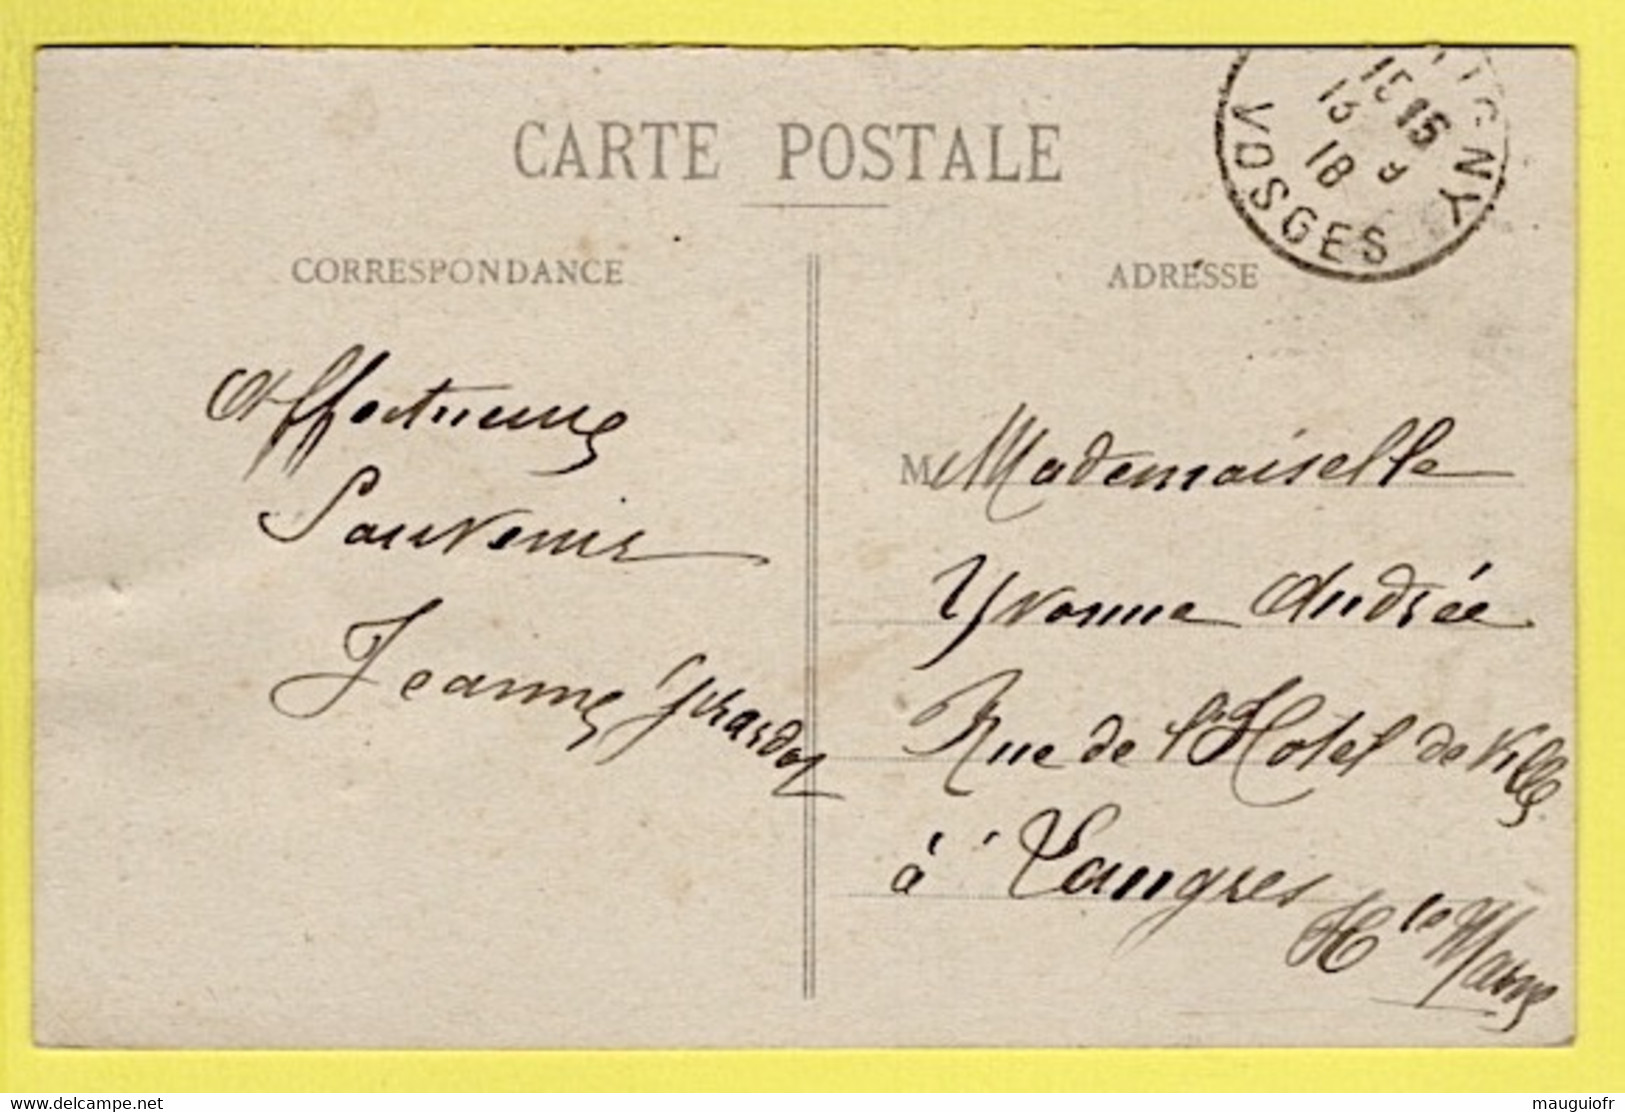 CARTE POSTALE
CORRESPONDANCE
Affectueux
Souvenir
Jeanne Girardot
VOSGES
15 15
13 9
18
ADRESSE
M Mademoiselle
Yvonne Andrée
Rue de l'Hotel de Ville
à Langres
Hte Marne
delcampe.net
mauguiofr